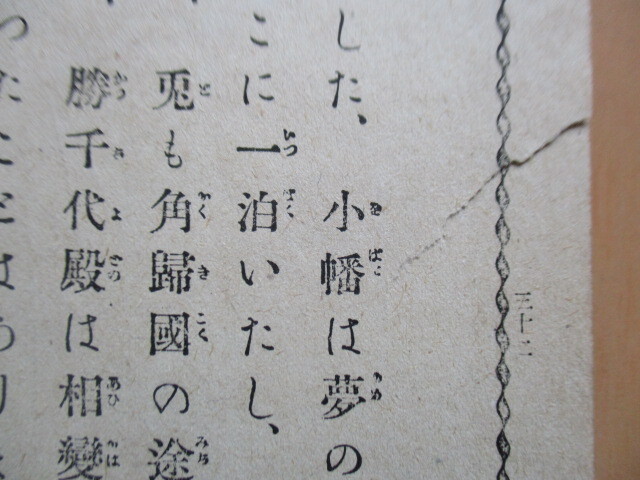 三十二
した、小幡は夢の
こに一泊いたし、
兎も角歸國の途
勝千代殿は相變